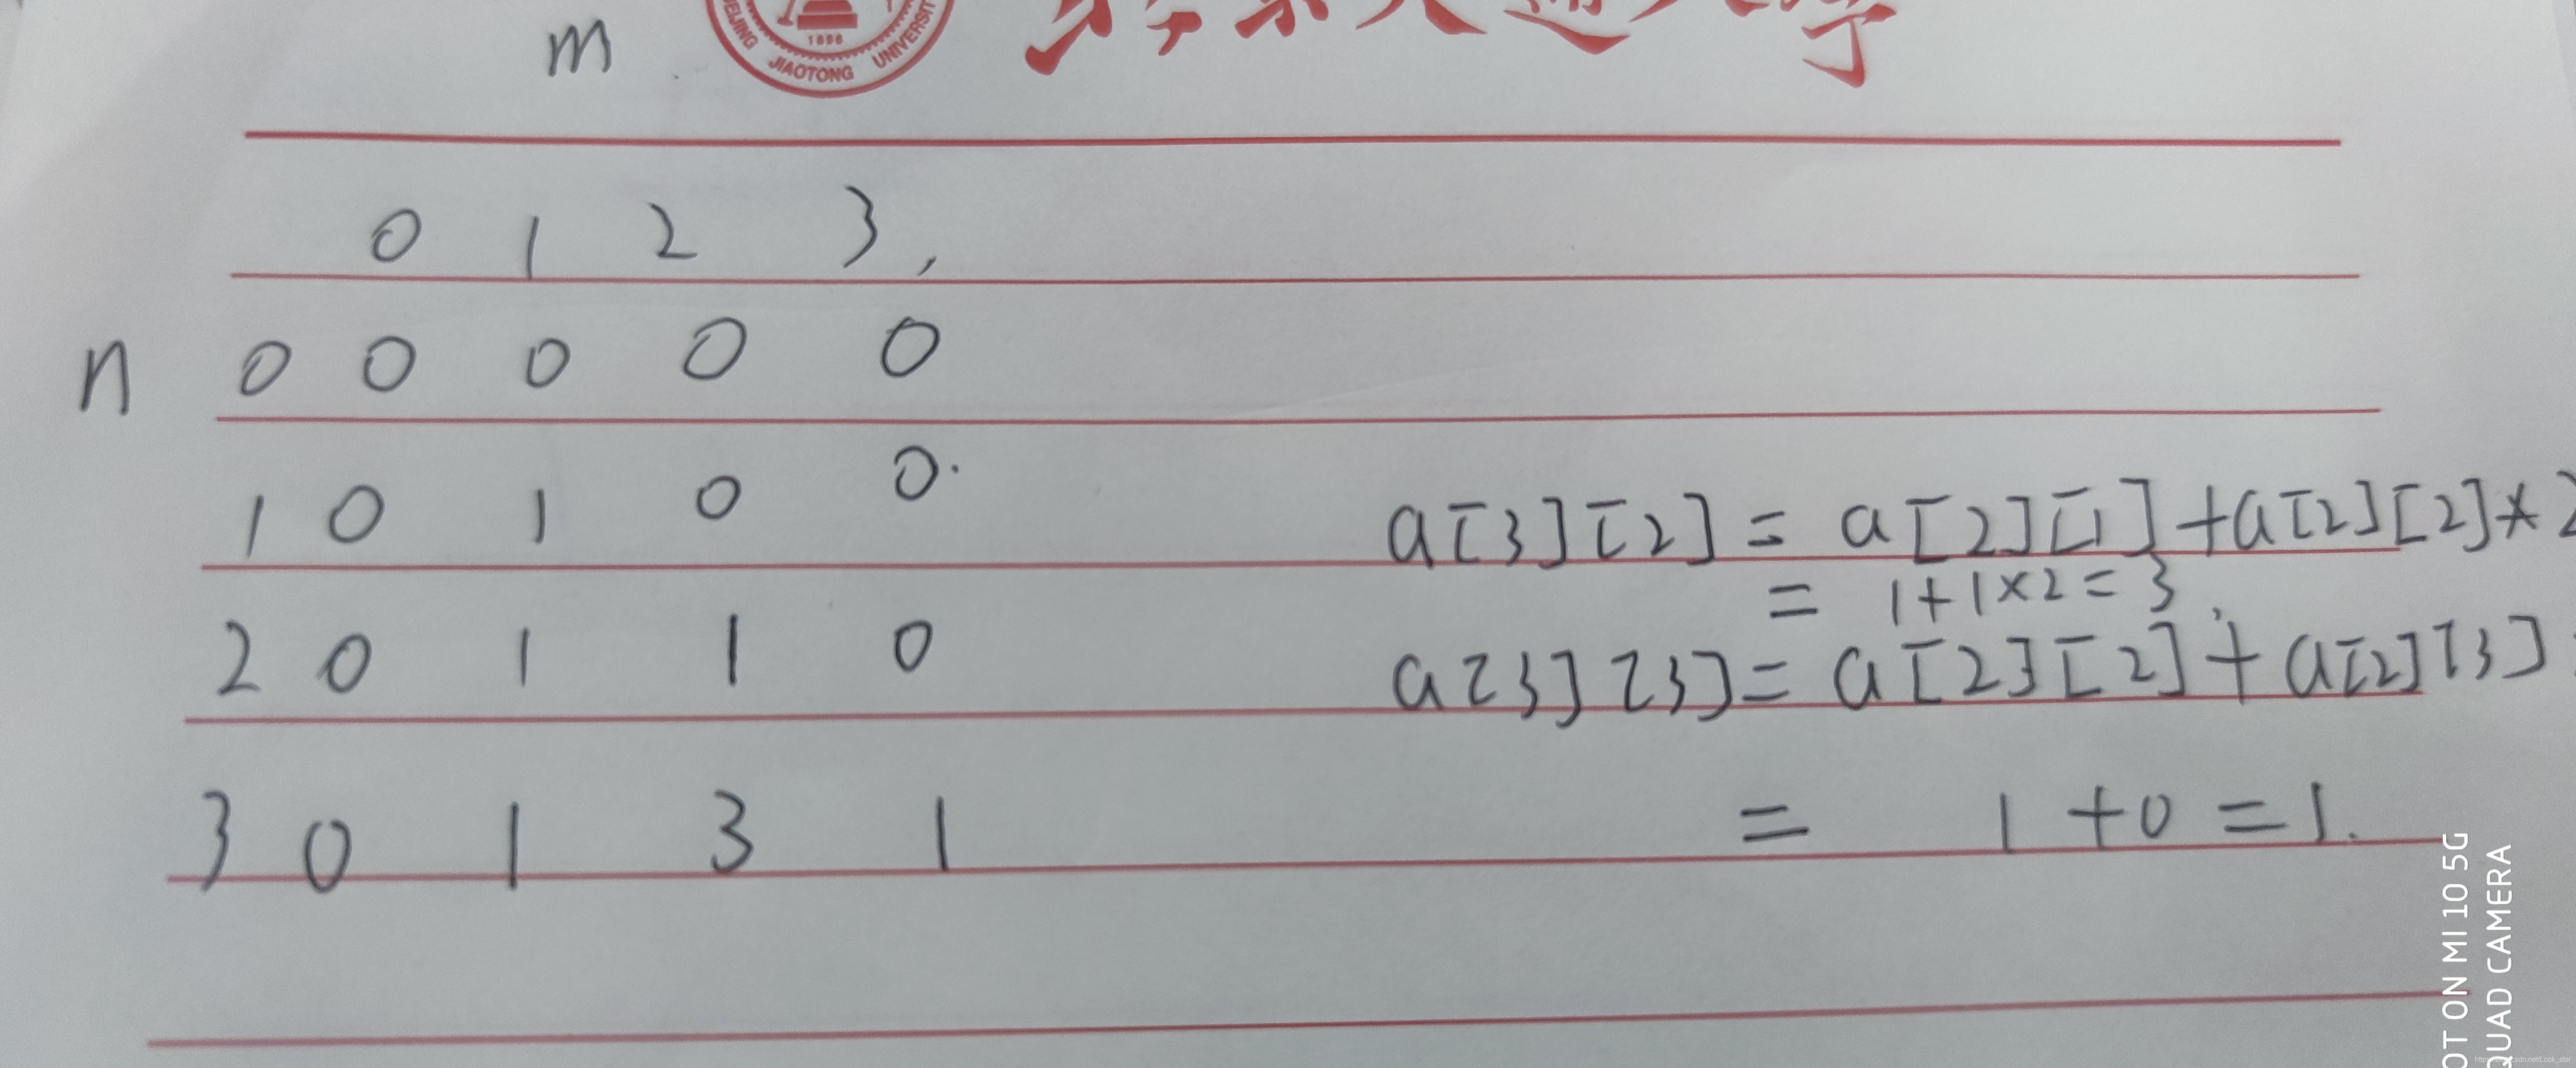 m
1896
JIAOTONG UNIVERSIT
0 1 2 3,
n 0 0 0 0 0
1 0 1 0 0.
a[3][2] = a[2][1]+a[2][2]*2
= 1+1×2=3,
2 0 1 1 0
a[3][3]= a[2][2]+a[2][3]
3 0 1 3 1
= 1+0=1.
OT ON MI 10 5G
QUAD CAMERA